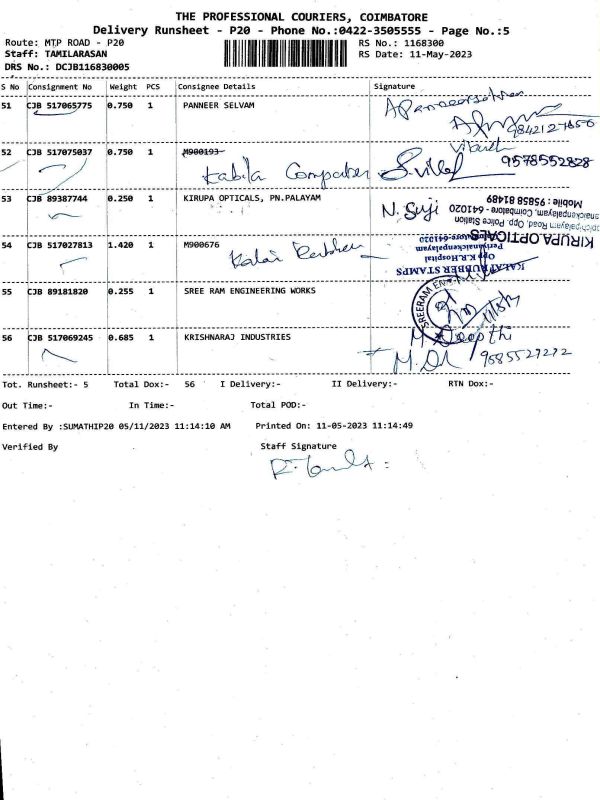 THE PROFESSIONAL COURIERS, COIMBATORE
Delivery Runsheet - P20 - Phone No.:0422-3505555 - Page No.:5
Route: MTP ROAD - P20 RS No.: 1168300
Staff: TAMILARASAN RS Date: 11-May-2023
DRS No.: DCJB116830005
S No Consignment No Weight PCS Consignee Details Signature
51 CJB 517065775 0.750 1 PANNEER SELVAM
9842127650
52 CJB 517075037 0.750 1 M900193
Kabila Computer 9578552828
53 CJB 89387744 0.250 1 KIRUPA OPTICALS, PN.PALAYAM N. Suji
Mobile : 95858 81489
Coimbatore - 641020
Road, Opp. Police Station
KIRUPA OPTICALS
54 CJB 517027813 1.420 1 M900676
Kalai Rubber
KALAI RUBBER STAMPS
Opp K.R.Hospital
Periyanaickenpalayam
Coimbatore-641020
55 CJB 89181820 0.255 1 SREE RAM ENGINEERING WORKS
SREERAM
56 CJB 517069245 0.685 1 KRISHNARAJ INDUSTRIES M. Deepthi
9585527272
Tot. Runsheet:- 5 Total Dox:- 56 I Delivery:- II Delivery:- RTN Dox:-
Out Time:- In Time:- Total POD:-
Entered By :SUMATHIP20 05/11/2023 11:14:10 AM Printed On: 11-05-2023 11:14:49
Verified By Staff Signature